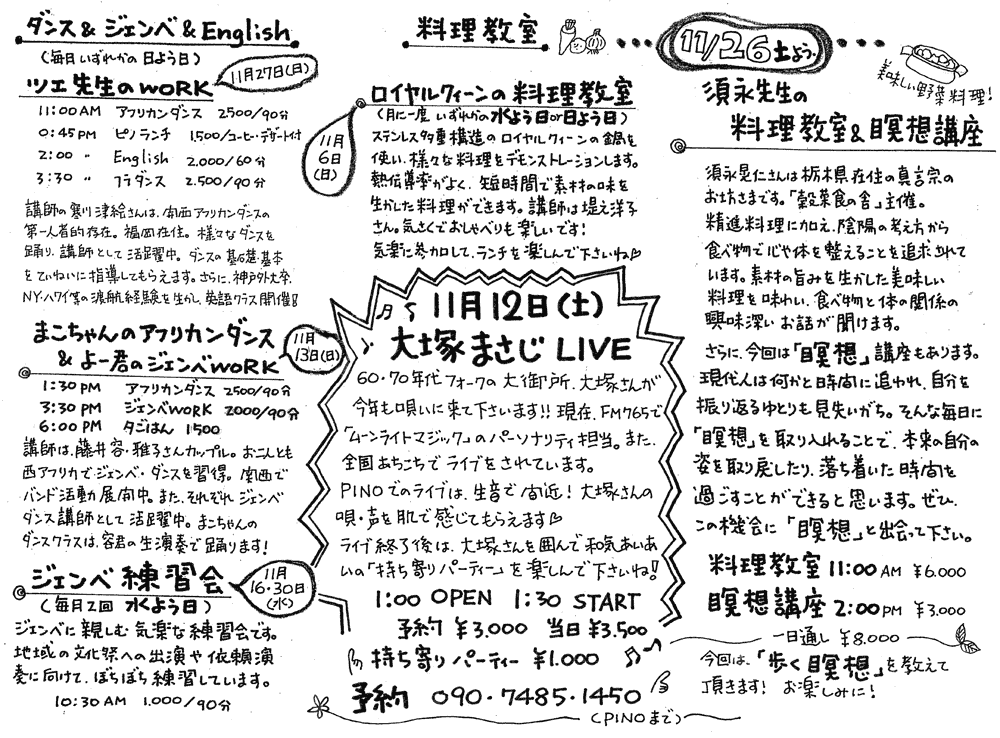 ダンス& ジェンベ & English
(毎月いずれかの 日よう日)
ツエ先生のWORK
11月27日(日)
11:00AM アフリカンダンス 2500/90分
0:45PM ピノランチ 1,500/コーヒー・デザート付
2:00 〃 English 2.000/60分
3:30 〃 フラダンス 2.500/90分
講師の寒川津絵さんは、関西アフリカンダンスの
第一人者的存在。福岡在住。様々なダンスを
踊り、講師として活躍中。ダンスの基礎・基本
をていねいに指導してもらえます。さらに、神戸外大卒、
NY・ハワイ等の渡航経験を生かし、英語クラス開催!!
まこちゃんのアフリカンダンス
& よー君のジェンベWORK
11月13日(日)
1:30PM アフリカンダンス 2500/90分
3:30PM ジェンベWORK 2000/90分
6:00PM 夕ごはん 1500
講師は、藤井容・雅子さんカップル。お二人とも
西アフリカでジェンベ・ダンスを習得。関西で
バンド活動展開中。また、それぞれ ジェンベ
ダンス講師として活躍中。まこちゃんの
ダンスクラスは、容君の生演奏で踊ります!
ジェンベ 練習会
11月
16・30日
(水)
(毎月2回 水よう日)
ジェンベに親しむ 気楽な練習会です。
地域の文化祭への出演や依頼演
奏に向けて、ぼちぼち練習しています。
10:30AM 1.000/90分
料理教室
ロイヤルクィーンの料理教室
11月
6日
(日)
(月に一度 いずれかの水よう日or日よう日)
ステンレス多重構造のロイヤルクィーンの鍋を
使い、様々な料理をデモンストレーションします。
熱伝導率がよく、短時間で素材の味を
生かした料理ができます。講師は堤え洋子
さん。気さくでおしゃべりも楽しいです!
気楽に参加して、ランチを楽しんで下さいね♡
11月12日(土)
大塚まさじ LIVE
60・70年代フォークの大御所、大塚さんが
今年も唄いに来て下さいます!! 現在、FM765で
「ムーンライトマジック」のパーソナリティ担当。また、
全国あちこちでライブをされています。
PINOでのライブは、生音で間近! 大塚さんの
唄・声を肌で感じてもらえます♡
ライブ終了後は、大塚さんを囲んで和気あいあ
いの「持ち寄りパーティー」を楽しんで下さいね!!
1:00 OPEN 1:30 START
予約 ¥3.000 当日 ¥3.500
持ち寄りパーティー ¥1.000
予約 090・7485・1450
(PINOまで)
11/26土よう・
美味しい野菜料理!
須永先生の
料理教室&瞑想講座
須永晃仁さんは栃木県在住の真言宗の
お坊さまです。「穀菜食の舎」主催。
精進料理に加え、陰陽の考え方から
食べ物で心や体を整えることを追求されて
います。素材の旨みを生かした美味しい
料理を味わい、食べ物と体の関係の
興味深いお話が聞けます。
さらに、今回は「瞑想」講座もあります。
現代人は何かと時間に追われ、自分を
振り返るゆとりも見失いがち。そんな毎日に
「瞑想」を取り入れることで、本来の自分の
姿を取り戻したり、落ち着いた時間を
過ごすことができると思います。ぜひ、
この機会に「瞑想」と出会って下さい。
料理教室 11:00AM ¥6.000
瞑想講座 2:00PM ¥3.000
一日通し ¥8.000
今回は、「歩く瞑想」を教えて
頂きます! お楽しみに!